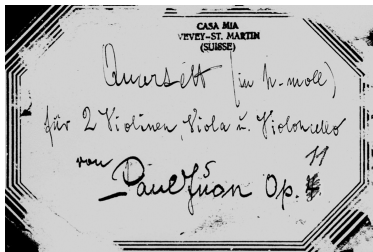 CASA MIA
VEVEY-ST. MARTIN
(SUISSE)
Quartett (in h-moll)
für 2 Violinen, Viola u. Violoncello
von
Paul Juon Op. 11
5